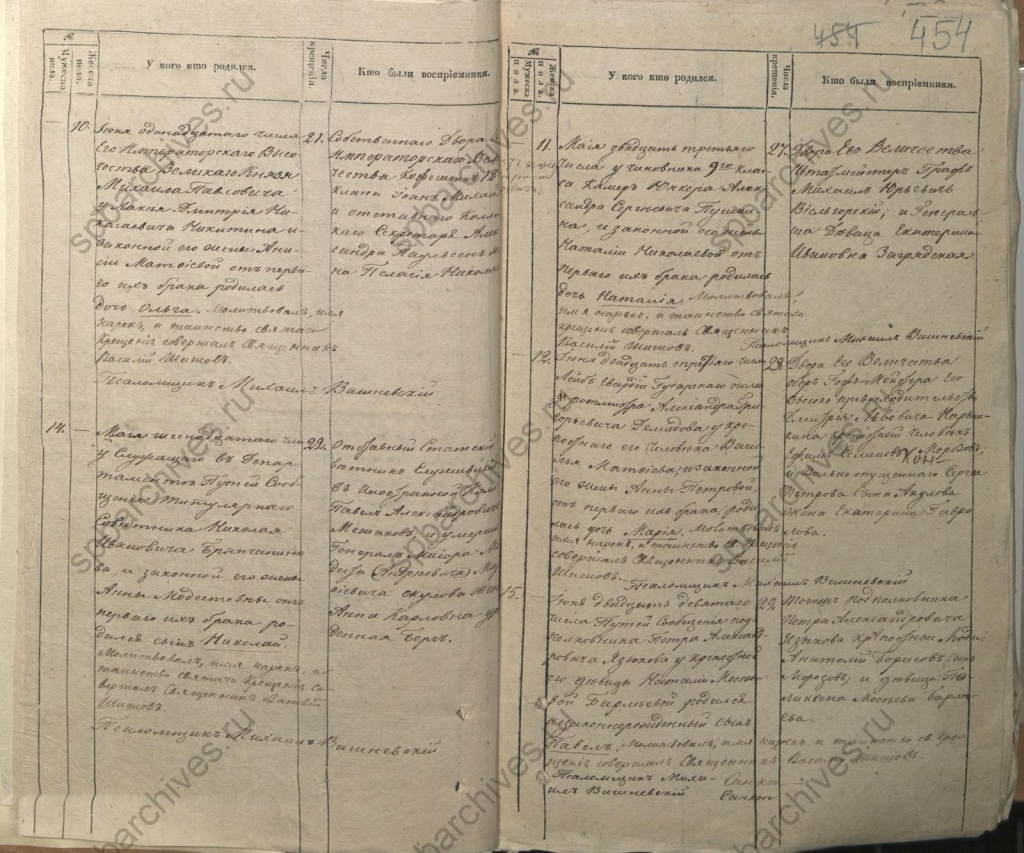 484 454
№
Мужеска пола.
Женска пола.
У кого кто родился.
Числа крещенія.
Кто были воспріемники.
10.
Іюня одинадцатаго числа
Его Императорскаго Высо-
чества Великаго Князя
Михаила Павловича
у лакея Дмитрія Ни-
колаевича Никитина и
законной его жены Ани-
сіи Матвіевой отъ перва-
го ихъ брака родилась
дочь Ольга. Молитвовалъ, имя
нарекъ, и таинство святаго
крещенія совершалъ Священникъ
Василій Шитовъ.
Псаломщикъ Михаилъ Вишневскій
21.
Собственнаго Двора
Императорскаго Вели-
чества Кофешенкъ 12
класса Іоаннъ
и отставнаго Колле-
скаго Секретаря Алек-
сандра
на Пелагія
14.
Маія шестнадцатаго чис
у Служащаго въ Депар-
таментѣ Путей Сооб-
щенія Титулярнаго
Совѣтника Николая
Ивановича Брянчанино-
ва, и законной его жены
Анны Модестовны отъ
перваго ихъ брака ро-
дился сынъ Николай.
Молитвовалъ, имя нарекъ, и
таинство святаго крещенія со-
вершалъ Священникъ Василій
Шитовъ.
Псаломщикъ Михаилъ Вишневскій
22.
Отставный Статскій
вѣтникъ Служившій
въ Иностранной Кол
Павелъ Александровичъ
Межаковъ, и умершаго
Генерала Маіора Мо
деста (Андреевича) Ма
твіевича Окулова Жена
Анна Карловна уро
жденная Бергъ.
№
Мужеска пола.
Женска пола.
У кого кто родился.
Числа крещенія.
Кто были воспріемники.
11.
Маія двадцать третьяго
числа у чиновника 9го клас-
са Камеръ Юнкера Алек-
сандра Сергѣевича Пушки-
на, и законной его жены
Наталіи Николаевой отъ
перваго ихъ брака родилась
дочь Наталія. Молитвовалъ,
имя нарекъ, и таинство святаго
крещенія совершалъ Священникъ
Василій Шитовъ. Псаломщикъ Михаилъ Вишневскій
27.
Двора Его Величества
Шталмейстеръ Графъ
Михаилъ Юрьевичъ
Віельгорскій; и Генераль-
ша Дѣвица Екатерина
Ивановна Загряжская
12.
Іюня двадцать третьяго числа
Лейбъ Гвардіи Гусарскаго полка
ротмистра Александра Гри-
горьевича Демидова у крѣ-
постнаго его человѣка Васи-
лья Матвѣева и законной
его жены Анны Петровой,
отъ перваго ихъ брака роди
лась дочь Марія. Молитвовалъ
имя нарекъ, и таинство св. Крещенія
совершалъ Священникъ Василій
Шитовъ. Псаломщикъ Михаилъ Вишневскій
29.
Двора Его Величества
оберъ Гофъ-Мейстера Его
Высоко превосходительства
Дмитрія Львовича Нарыш-
кина крѣпостный человѣкъ
Ефимъ Семеновъ Морозовъ;
и Вольно отпущеннаго Сергея
Петрова Сына Акулова
Жена Екатерина Гаври
лова.
15.
Іюня двадцать девятаго
числа Путей Сообщенія под-
полковника Петра Алексан-
дровича Языкова у крѣпостной
его дѣвицы Наталіи
вой родился
незаконнорожденный сынъ
Павелъ. Молитвовалъ, имя нарекъ и таинство св. кре-
щенія совершалъ Священникъ Василій Шитовъ.
Псаломщикъ Миха-
илъ Вишневскій
Санкт
Санкт
29.
Тогожъ подполковника
Петра Александровича
Языкова крѣпостные люди
Анатолій Борисовъ Сынъ
Морозовъ; и дѣвица
spbarchives.ru